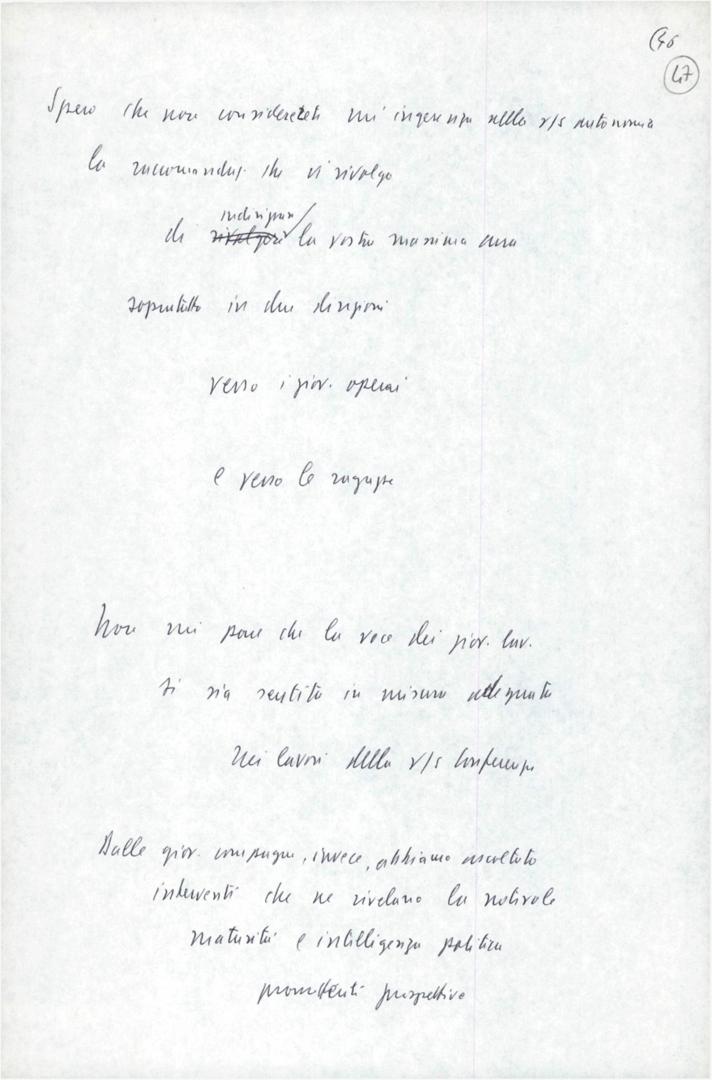 46
47
Spero che non considerete un'ingerenza nella v/s autonomia
la raccomandaz. che vi rivolgo
indirizzare
di rivolgere la vostra massima cura
soprattutto in due direzioni
verso i giov. operai
e verso le ragazze
Non mi pare che la voce dei giov. lav.
si sia sentita in misura adeguata
nei lavori della v/s Conferenza
Dalle giov. compagne, invece, abbiamo ascoltato
interventi che ne rivelano la notevole
maturità e intelligenza politica
promettenti prospettive